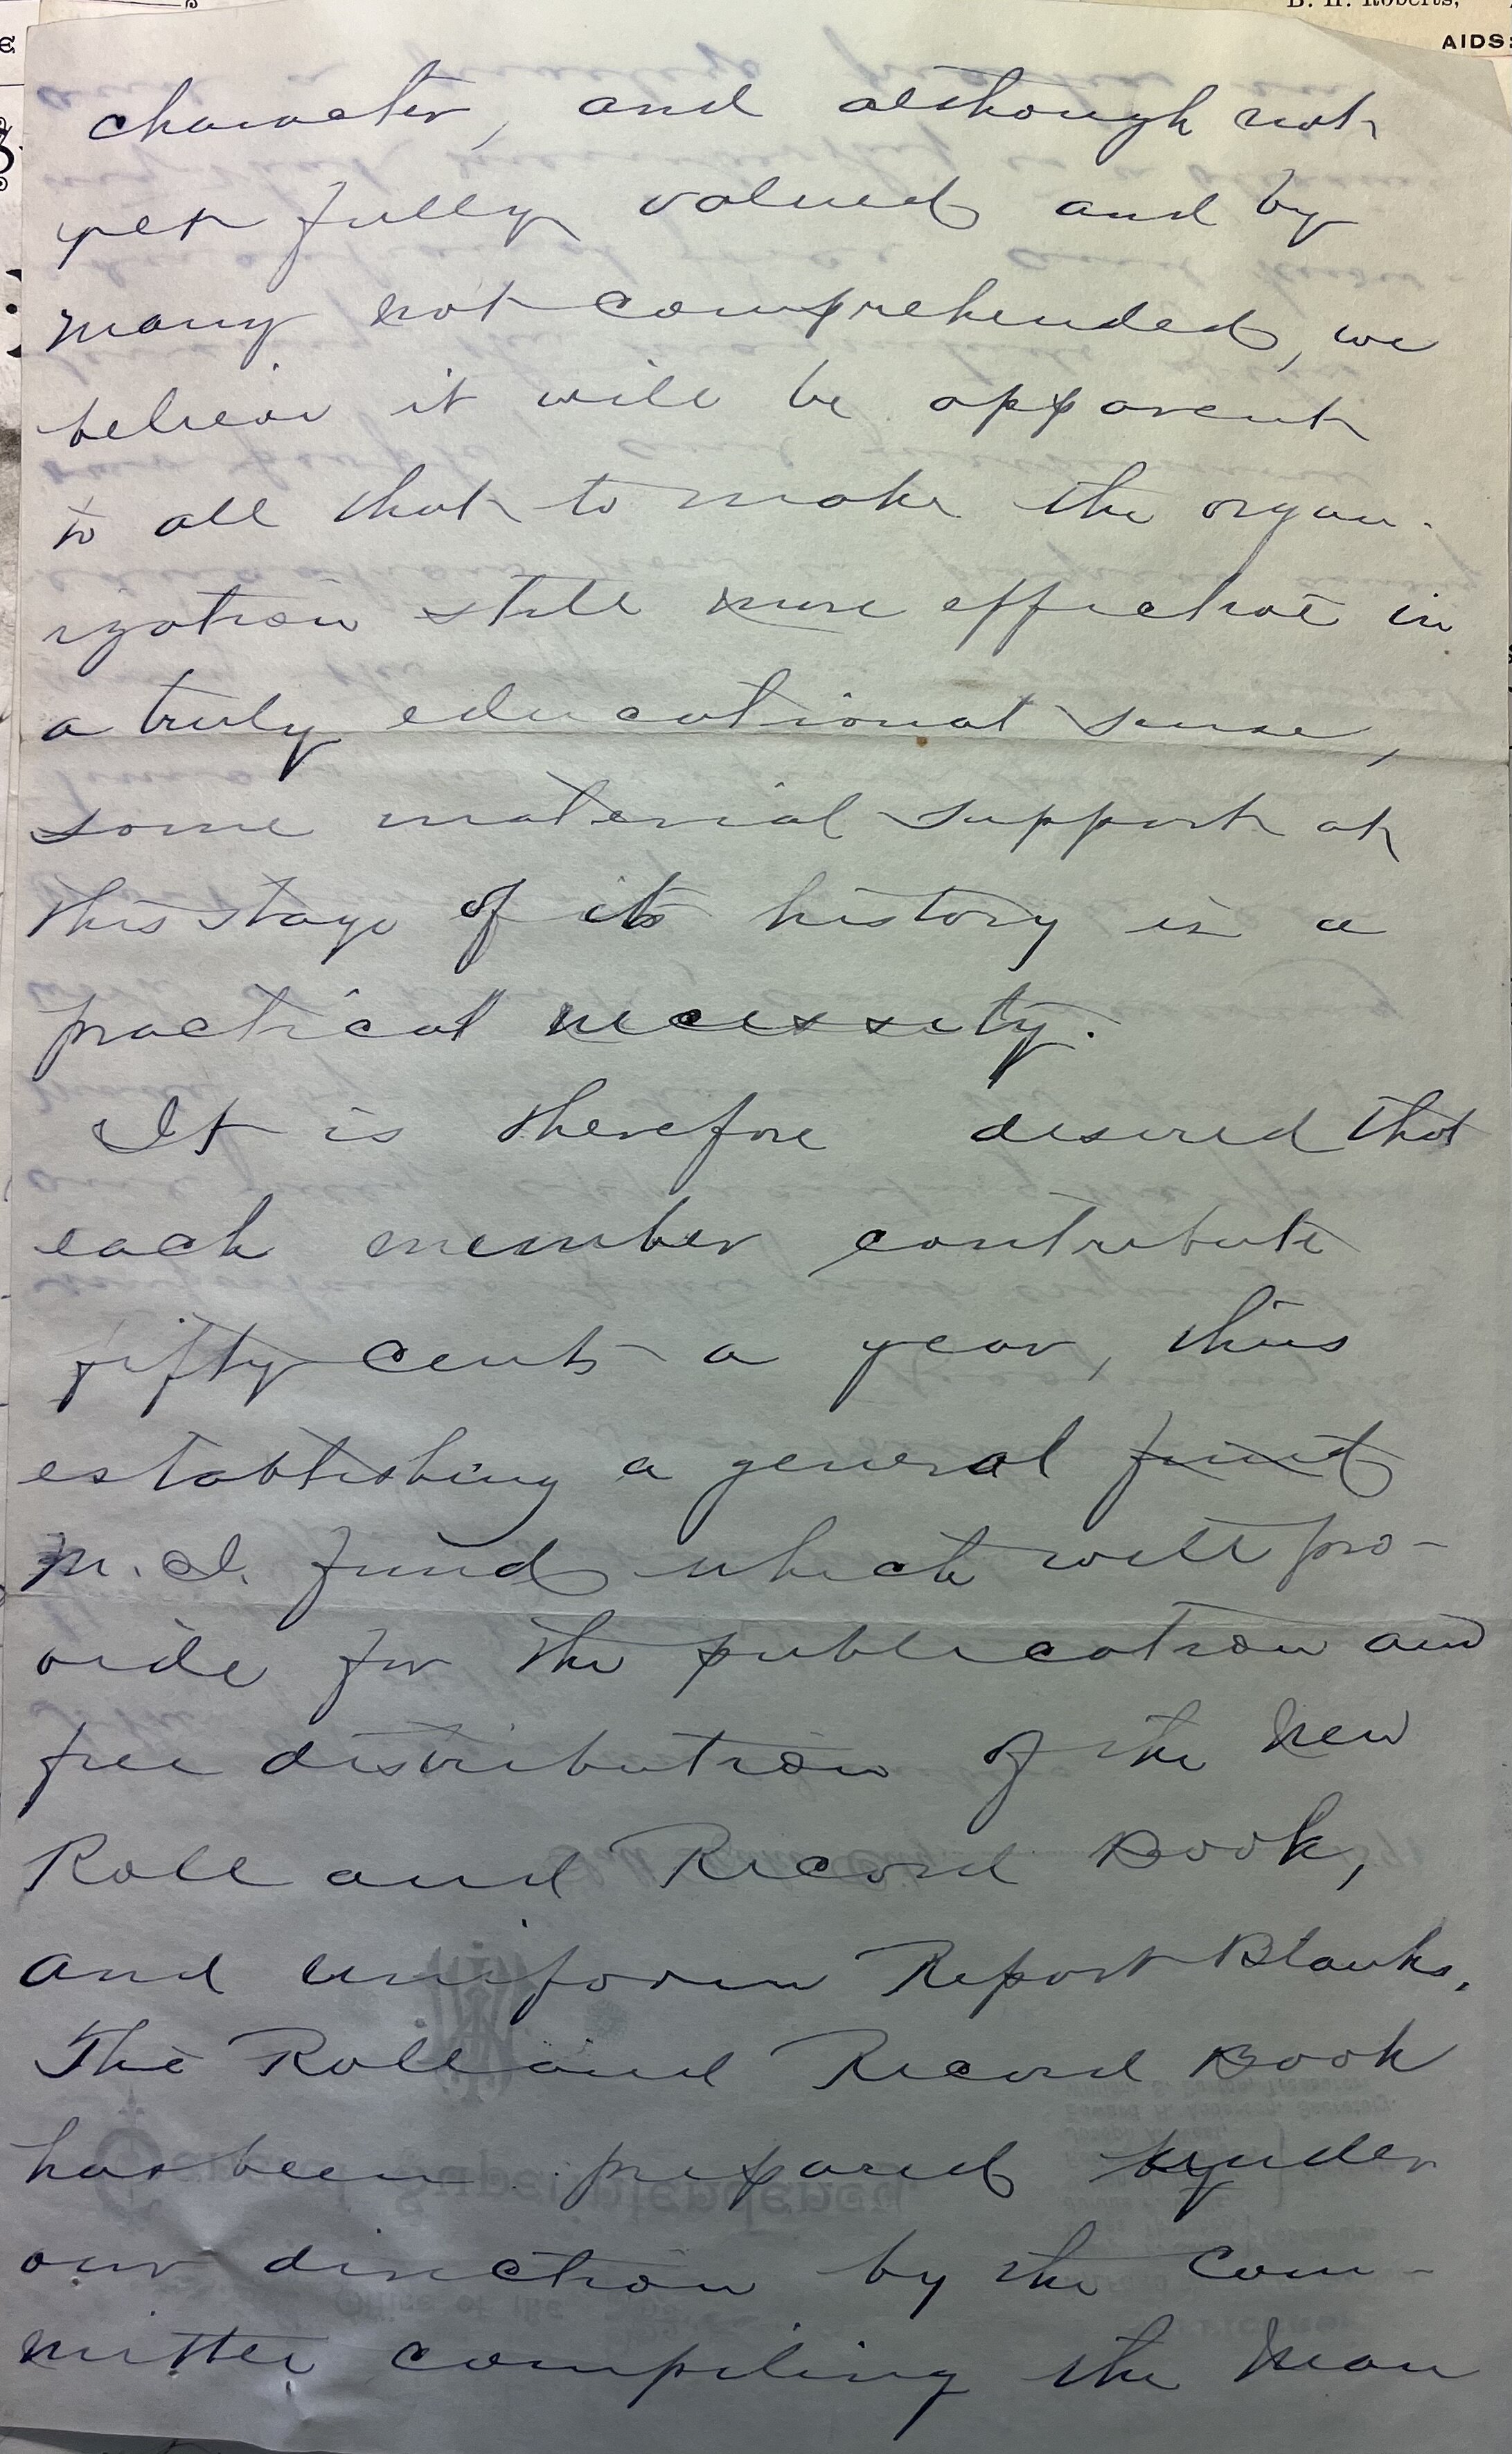 B. H. Roberts,
AIDS:
character, and although not
yet fully valued and by
many not comprehended, we
believe it will be apparent
to all that to make the organ-
ization still more effective in
a truly educational sense,
some material support at
this stage of its history is a
practical necessity.
It is therefore desired that
each member contribute
fifty cents a year, thus
establishing a general fund
M. I. fund which will pro-
vide for the publication and
free distribution of the new
Roll and Record Book,
and uniform Report Blanks.
The Roll and Record Book
has been prepared under
our direction by the com-
mittee compiling the Man